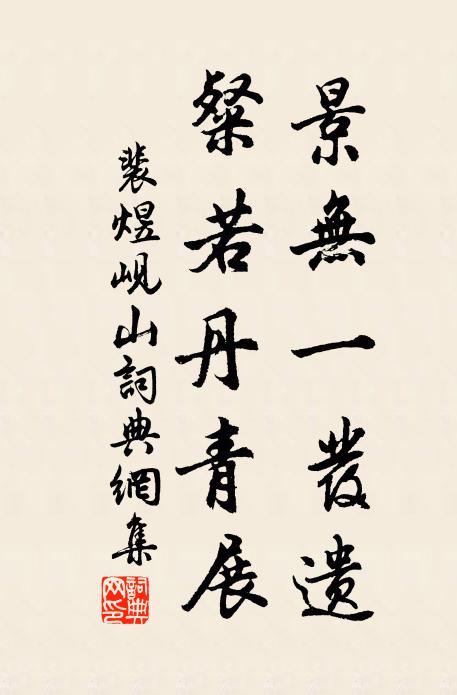 景無一發遺
粲若丹青展
裴煜峴山詞典網集
詞典網印